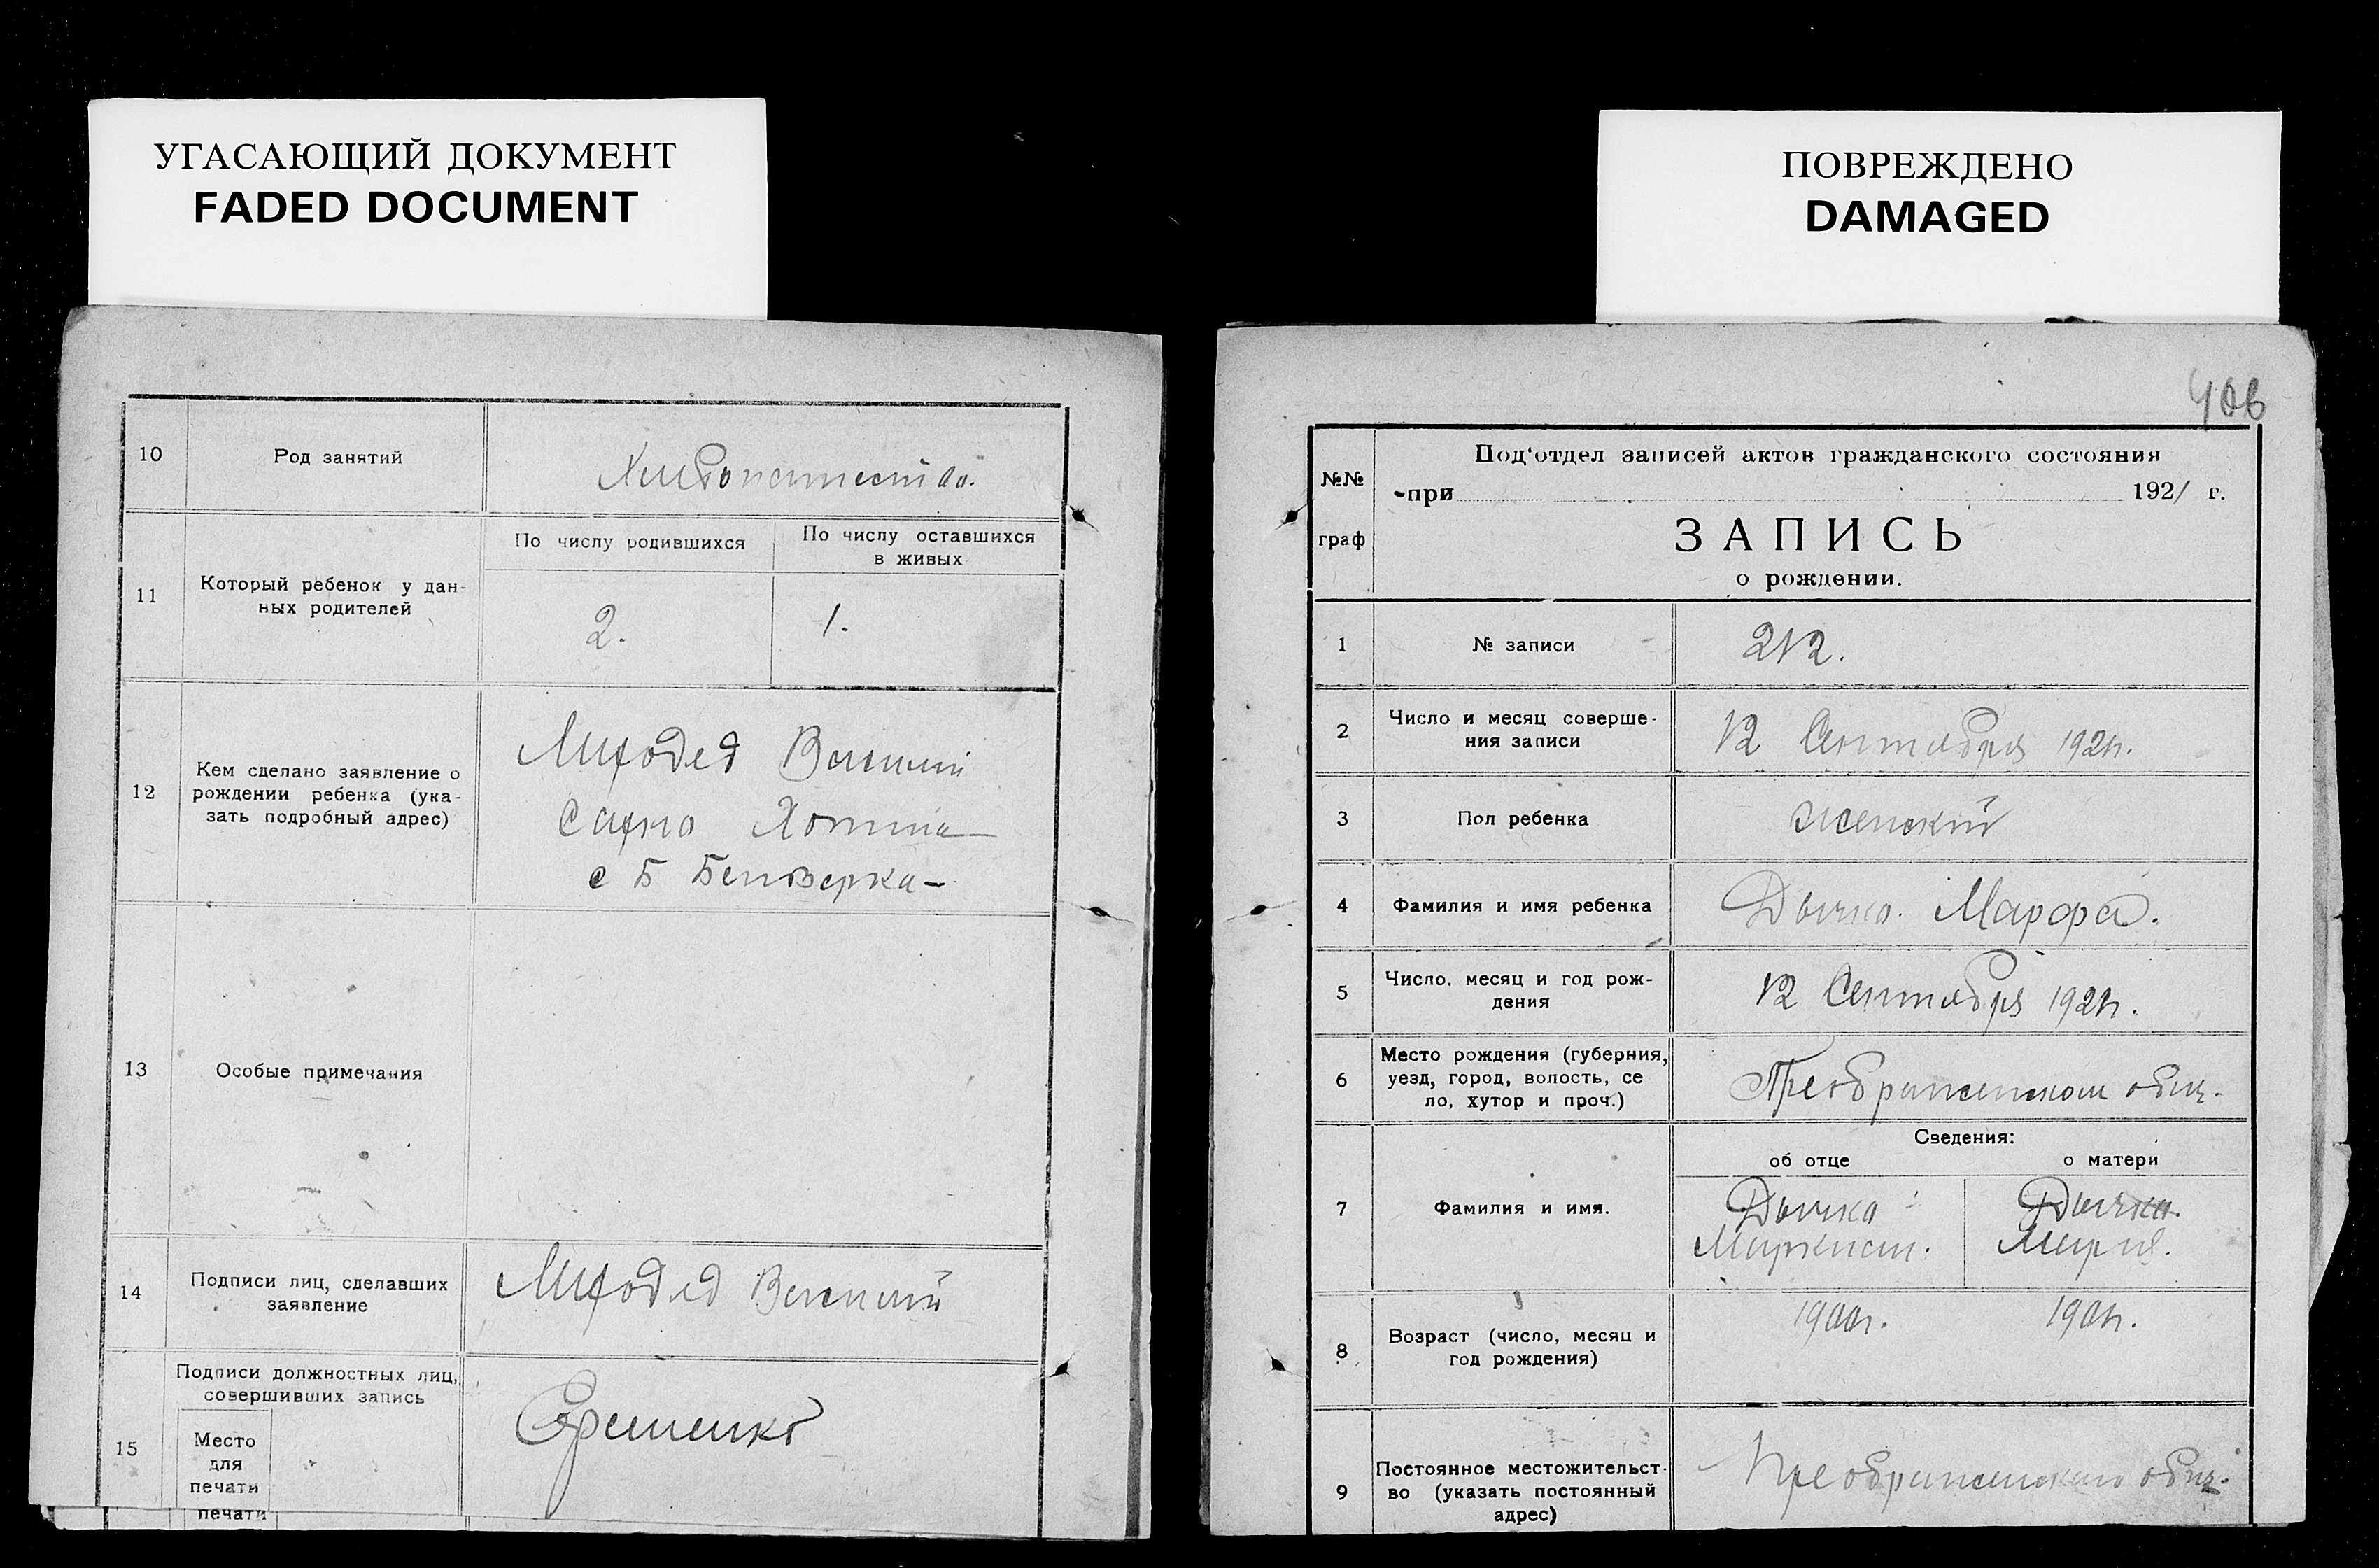 УГАСАЮЩИЙ ДОКУМЕНТ
FADED DOCUMENT
10
Род занятий
11
Который ребенок у дан-
ных родителей
По числу родившихся
По числу оставшихся
в живых
2.
1.
12
Кем сделано заявление о
рождении ребенка (ука-
зать подробный адрес)
с Б
13
Особые примечания
14
Подписи лиц, сделавших
заявление
15
Подписи должностных лиц,
совершивших запись
Место
для
печати
печати
ПОВРЕЖДЕНО
DAMAGED
406
№№
граф
Под‘отдел записей актов гражданского состояния
-при 1921 г.
ЗАПИСЬ
о рождении.
1
№ записи
212.
2
Число и месяц соверше-
ния записи
12 Сентября 1921г.
3
Пол ребенка
женский
4
Фамилия и имя ребенка
Дычко. Марфа.
5
Число. месяц и год рож-
дения
12 Сентября 1921г.
6
Место рождения (губерния,
уезд, город, волость, се
ло, хутор и проч.)
Преображенском общ.
7
Фамилия и имя.
Сведения:
об отце
о матери
Дычко
Дычко.
Мария.
8
Возраст (число, месяц и
год рождения)
1900г.
1901г.
9
Постоянное местожительст-
во (указать постоянный
адрес)